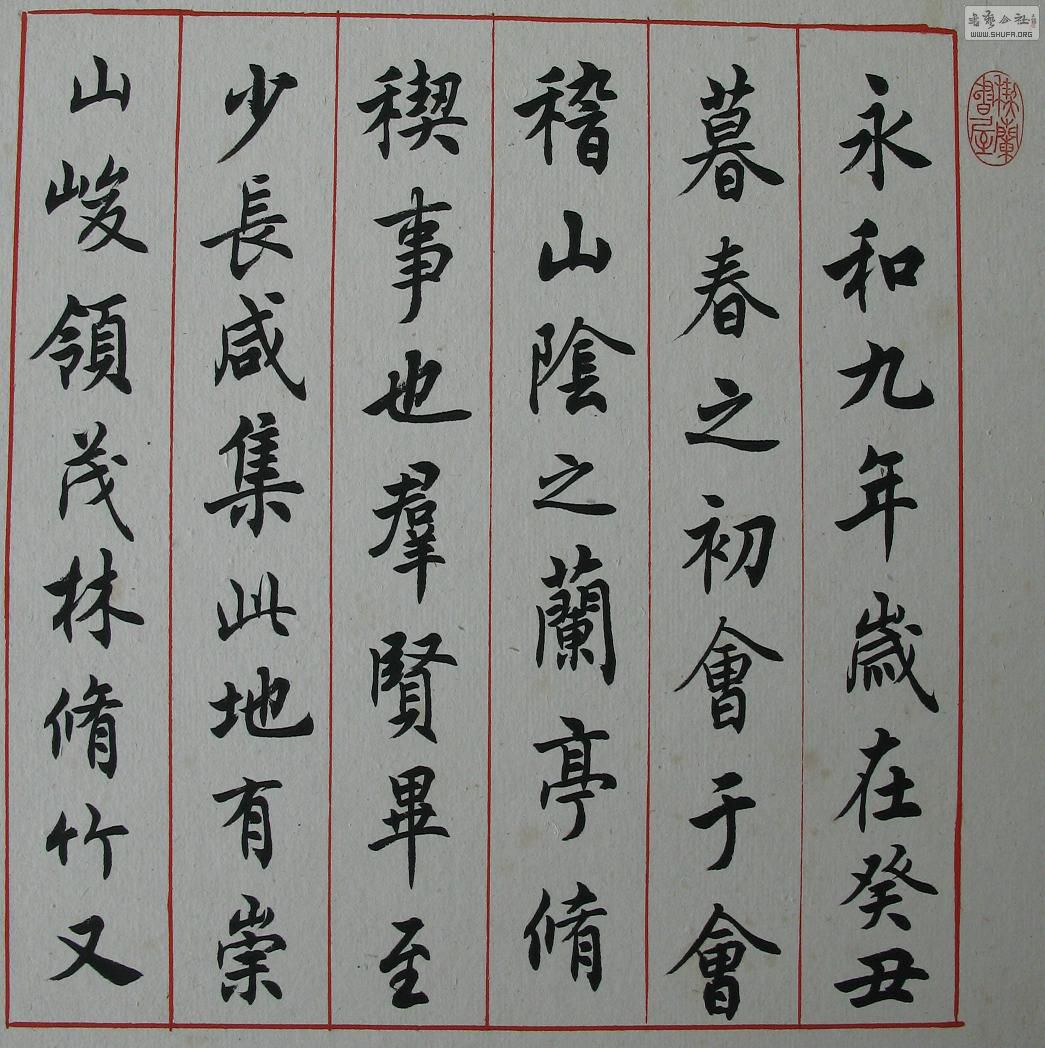 永和九年歲在癸丑
暮春之初會于會
稽山陰之蘭亭脩
稧事也羣賢畢至
少長咸集此地有崇
山峻領茂林脩竹又
稧蘭書屋
书艺公社
WWW.SHUFA.ORG